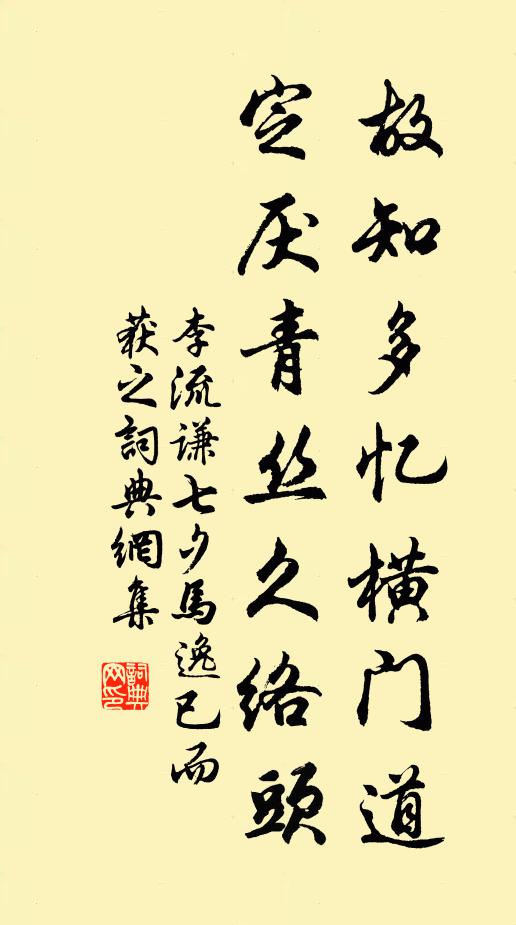 故知多忆橫门道
定厌青丝久络頭
李流谦七夕馬逸已而
获之詞典網集
詞典网印